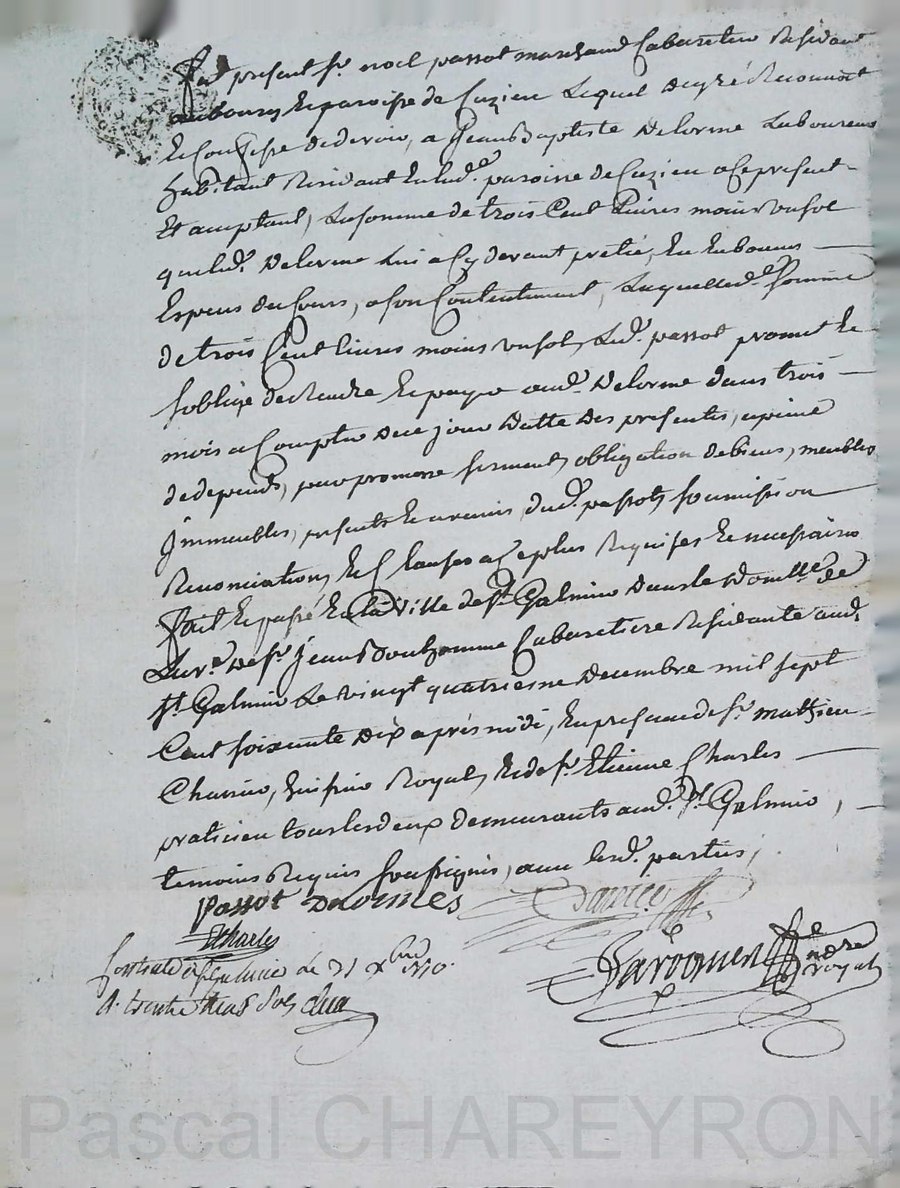 Fut present sr. noel passot marchand Cabaretier Residant
au bourg Et paroisse de Cuzieu Lequel De gré Reconnoit
Et Confesse de devoir, a Jean Baptiste Delorme Laboureur
habitant Residant En lade. paroisse de Cuzieu a Ce present
Et acceptant, La somme de trois Cent Livres moins un sol
que led. Delorme Lui a Cy devant pretée, En Enbonnes
Especes du Cours, a son Contentement, Laquelle de. somme
de trois Cent livres moins un sol, Led. passot promet Et
s'oblige de Rendre Et payer aud. Delorme dans trois
mois a Compter de ce jour Datte Des presentes, a peine
de depends, par promesse serment, obligation de biens, meubles
Jmmeubles, presents Et avenir, dud. passot, soumission
Renonciation, Et Clauses a Ce plus Requises Et necessaires
Fait Et passé En la Ville de st. Galmier Dans le Domille. de
Sr. Jean Bonhomme Cabaretiere Residante aud.
st. Galmier Le vingt quatriesme Decembre mil sept
Cent soixante Dix après midi, En presence de sr. mathieu
Charrier, huissier Royal, Et de sr. Etienne Charles
praticien tous les deux demeurants aud. st. Galmier,
temoins Requis soussignés, avec lesd. parties,
passot Delormes
Charles
Controlé a st Galmier Le 31 xbre 1770.
R. trente neuf sols
nore royal
Pascal CHAREYRON